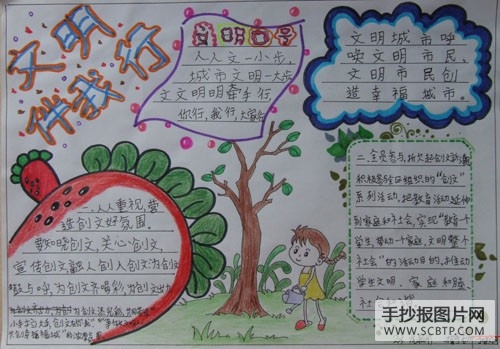 文明
伴我行
文明口号
人人文一小步,
城市文明一大步
文文明明牵手行
你行,我行,大家行
文明城市呼
唤文明市民、
文明市民创
造幸福城市。
一、人人重视,营
造创文好氛围。
宣传创文,
为创文齐喝彩,为创文出力
二、全员参与,掀起创文热潮
积极参与组织的“创文”
系列活动,把教育活动延伸
到家庭和社会,实现“教育一个
学生,带动一个家庭,文明整个
社会”的活动目的,并推动
学生文明、家庭和睦、
手抄报图片网
WWW.SCBTP.COM